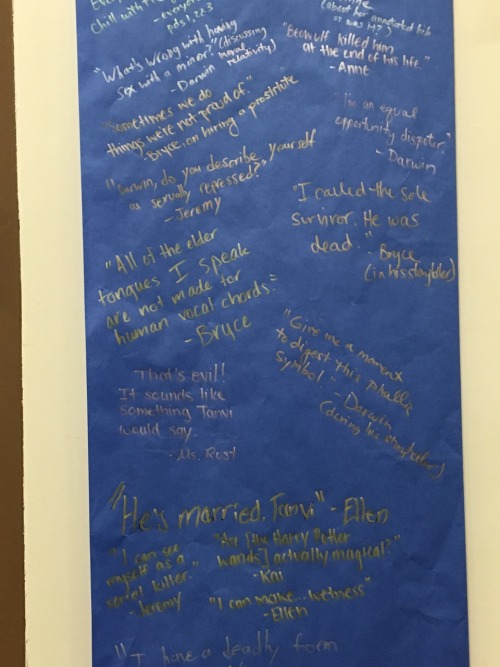 chill with
- everyone
pds 1, 2 & 3
(about her annotated bib
or was it?)
"What's wrong with having
sex with a minor?" (discussing
- Darwin moral
relativity)
"Beowulf killed him
at the end of his life."
- Anne
"Sometimes we do
things we're not proud of."
- Bryce, on hiring a prostitute
"I'm an equal
opportunity disputer."
- Darwin
"Darwin, do you describe yourself
as sexually repressed?"
- Jeremy
"I called the sole
survivor. He was
dead." - Bryce
(in his storyteller)
"All of the elder
tongues I speak
are not made for
human vocal chords."
- Bryce
"Give me a moment
to digest this phallic
symbol." - Darwin
(during his storyteller)
That's evil!
It sounds like
something Tanvi
would say.
- Ms. Rust
"He's married, Tanvi" - Ellen
"I can see
myself as a
serial killer."
- Jeremy
"Are [the Harry Potter
wands] actually magical?"
- Kai
"I can make... wetness"
- Ellen
"I have a deadly form